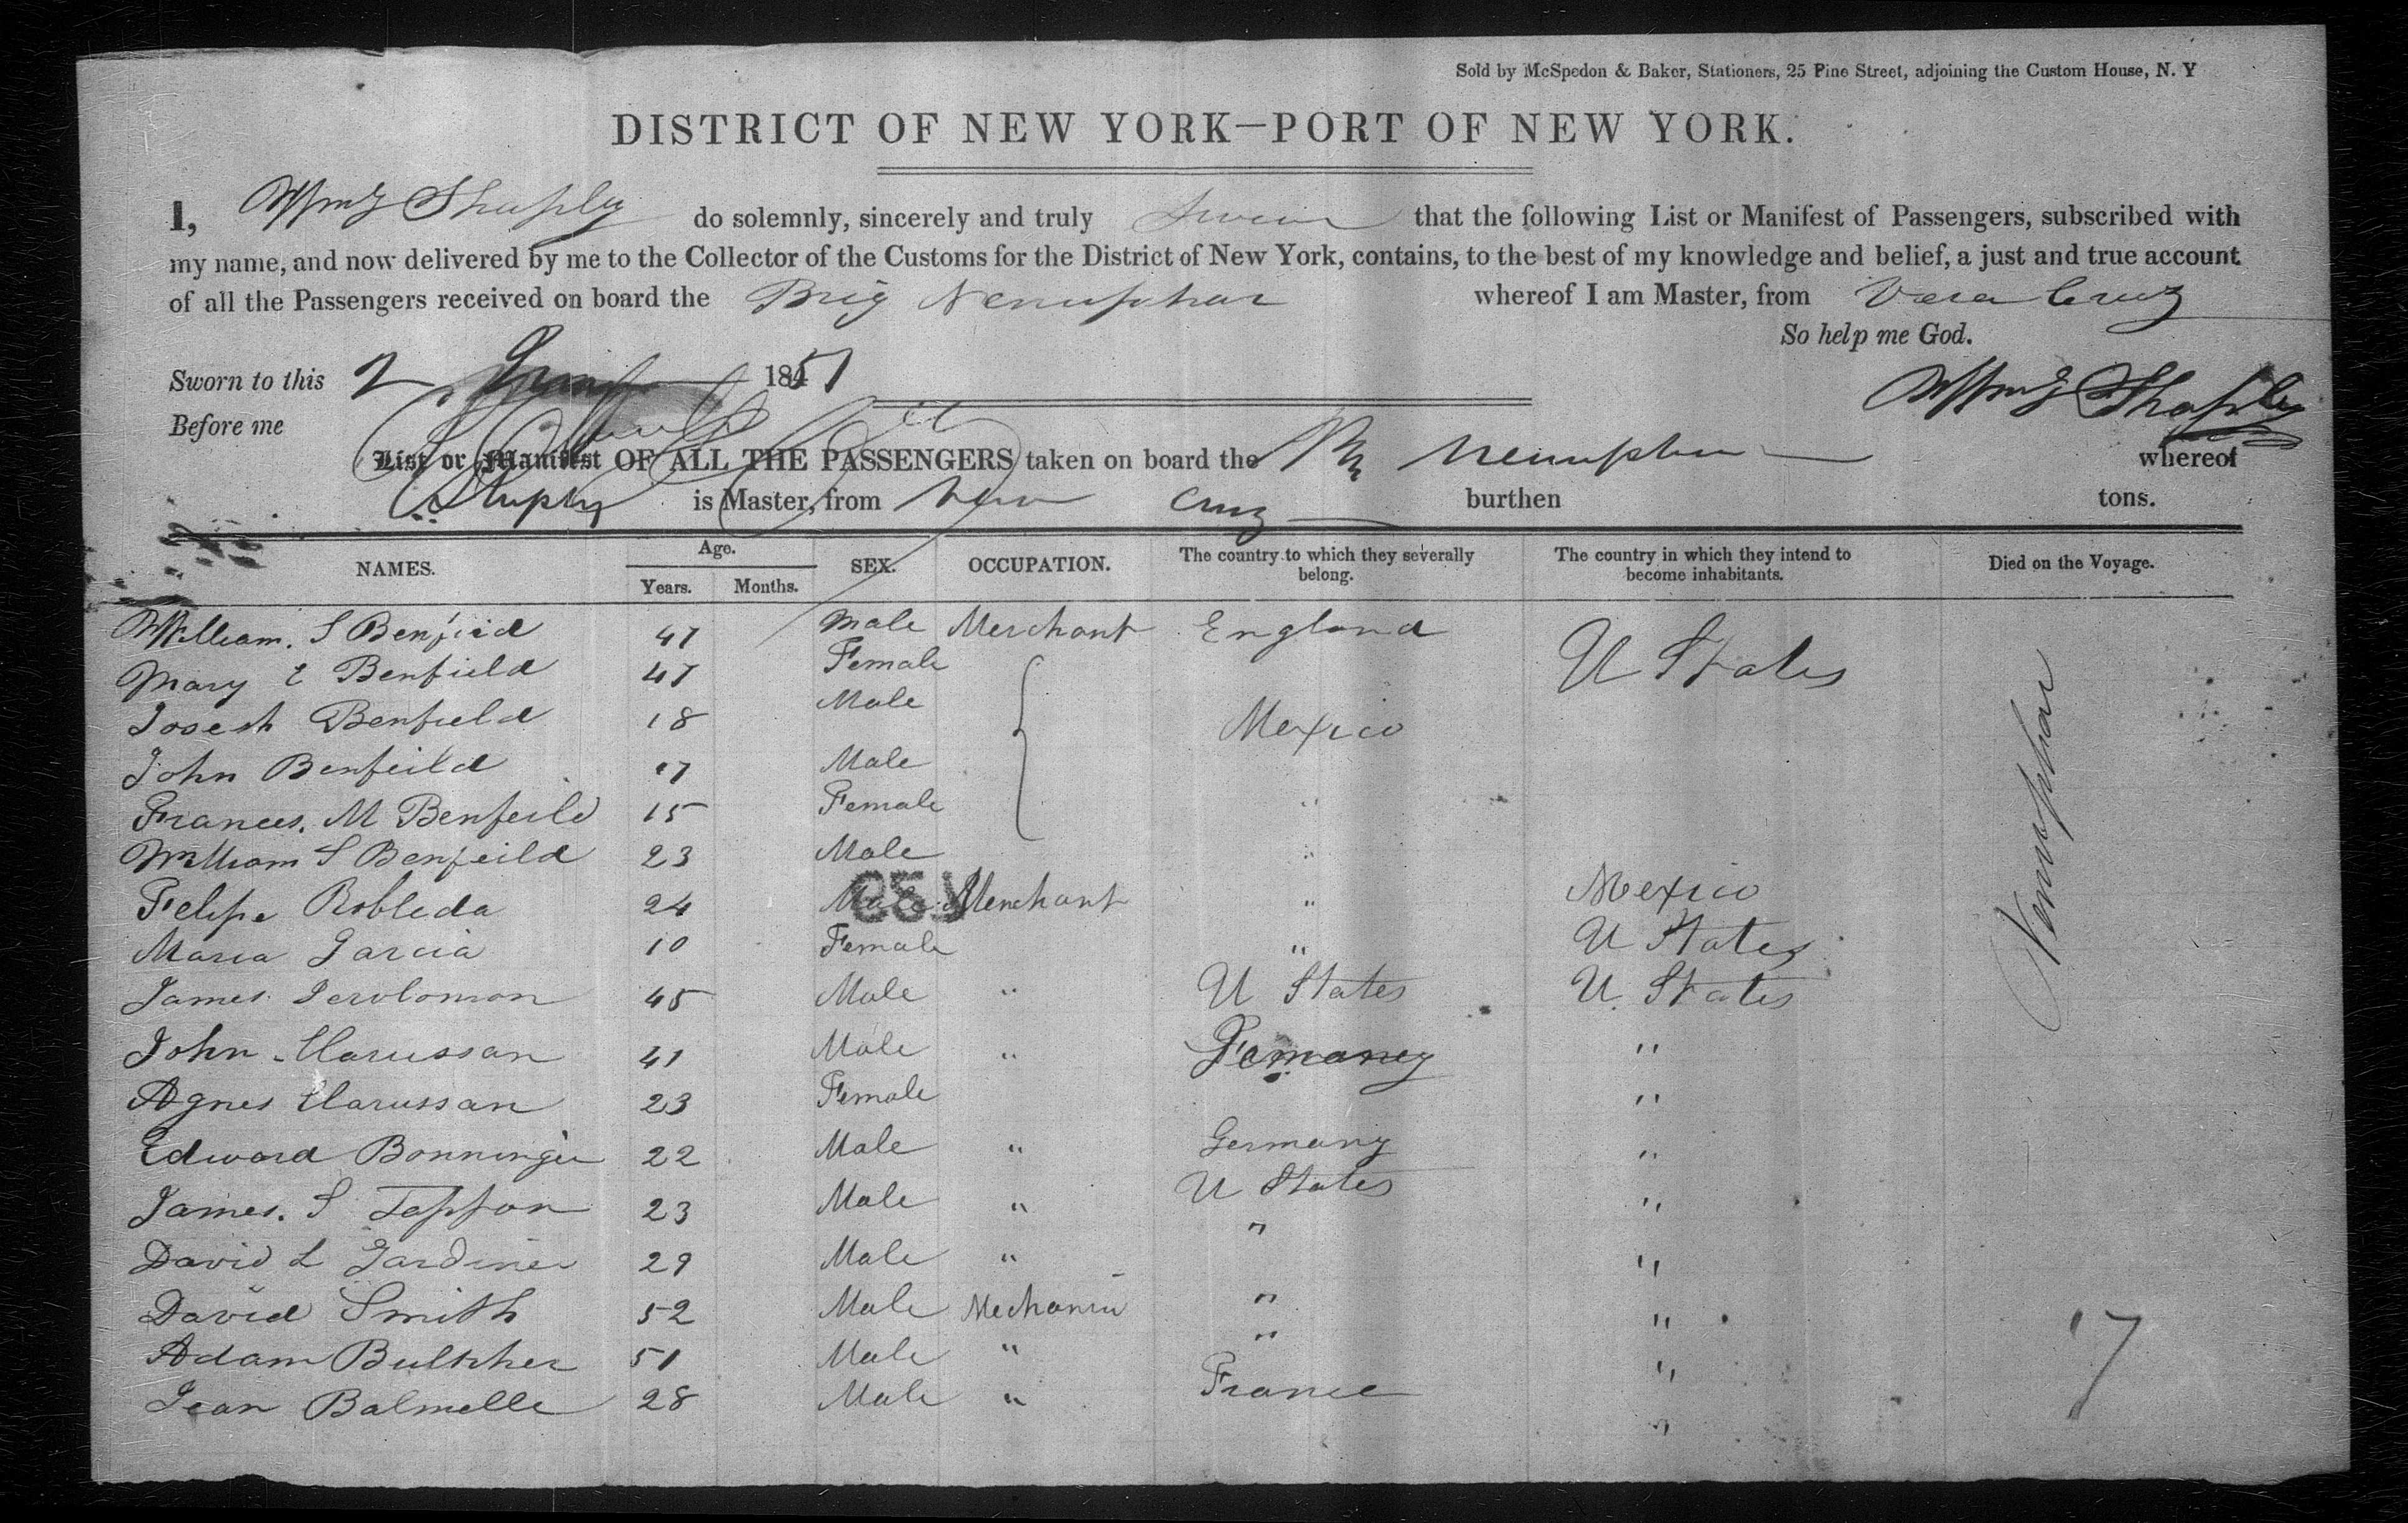 Sold by McSpedon & Baker, Stationers, 25 Pine Street, adjoining the Custom House, N. Y
DISTRICT OF NEW YORK—PORT OF NEW YORK.
I, Shaply do solemnly, sincerely and truly Swear that the following List or Manifest of Passengers, subscribed with
my name, and now delivered by me to the Collector of the Customs for the District of New York, contains, to the best of my knowledge and belief, a just and true account
of all the Passengers received on board the Brig Nenuphar whereof I am Master, from Vera Cruz
So help me God.
Sworn to this 2 1851
Before me Shaply
List or Manifest OF ALL THE PASSENGERS taken on board the Br Nenuphar whereof
Shaply is Master, from Vera Cruz burthen tons.
NAMES. Age. Years. Months. SEX. OCCUPATION. The country to which they severally belong. The country in which they intend to become inhabitants. Died on the Voyage.
William. S Benfeild 41 Male Merchant England U States
Mary E Benfield 47 Female
Joseph Benfield 18 Male Mexico
John Benfeild 17 Male
Frances. M Benfeild 15 Female "
William S Benfeild 23 Male "
Felipe Robleda 24 Male Merchant " Mexico
Maria Garcia 10 Female " U States
James 45 Male " U States U. States
John 41 Male " Germany "
Agnes 23 Female "
Edward Bonninger 22 Male " Germany "
James. S 23 Male " U States "
David L Gardiner 29 Male " " "
David Smith 52 Male Mechanic " "
Adam 51 Male " " "
Jean Balmelle 28 Male " France "
Nenuphar
17